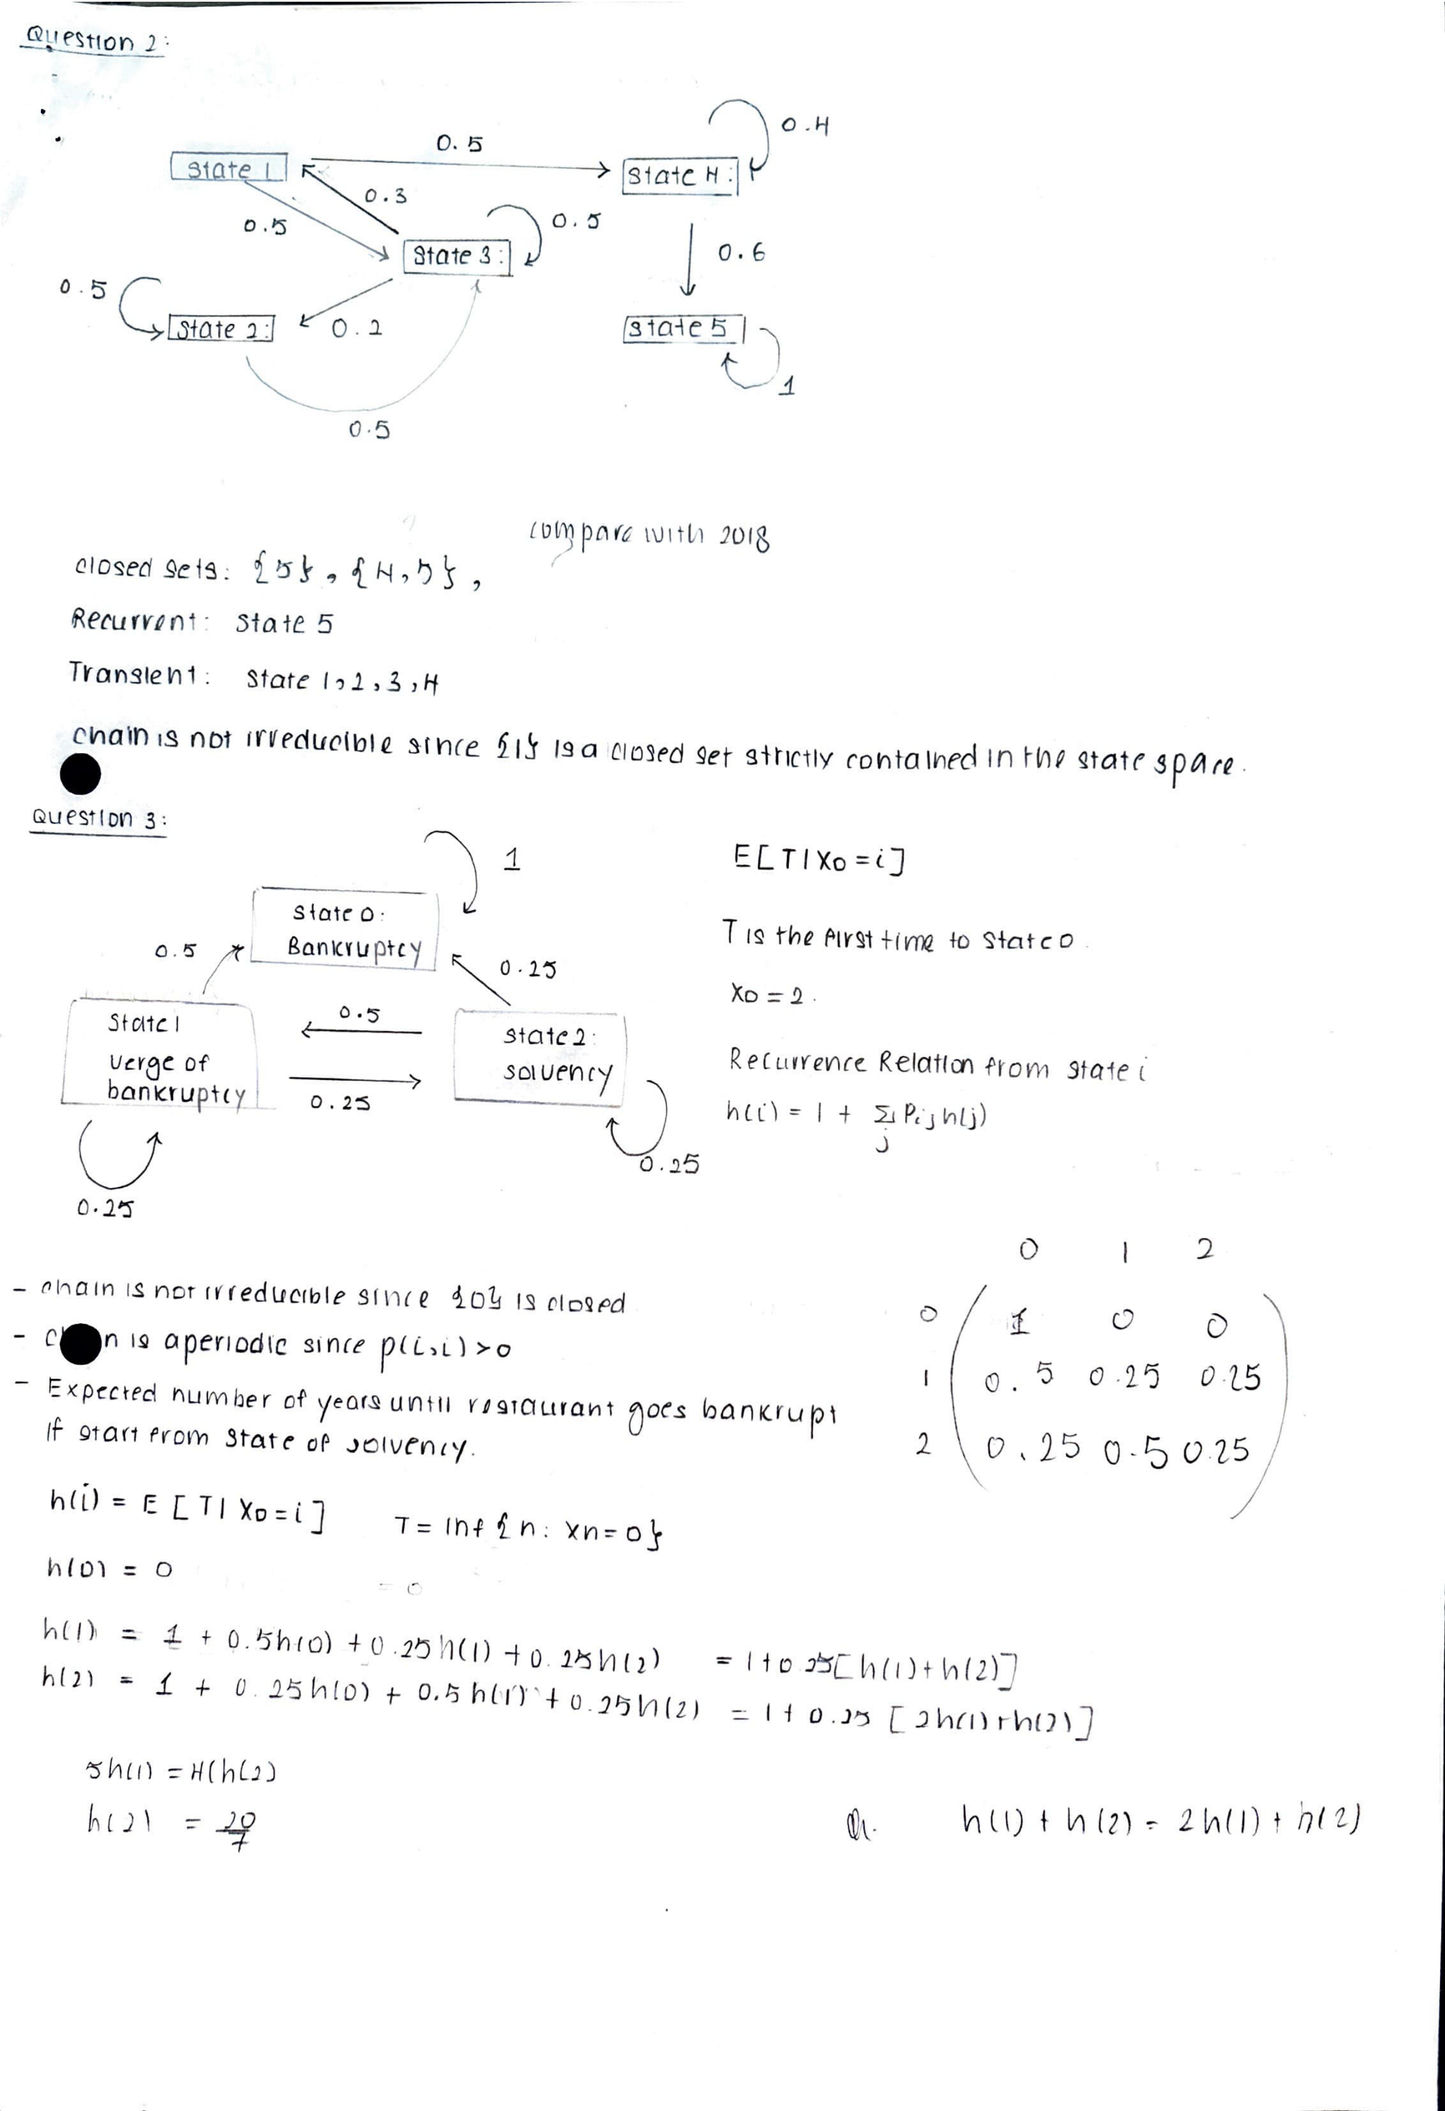 Question 2:
0.5
0.4
State 1
State 4:
0.3
0.5
0.5
State 3:
0.6
0.5
State 2:
0.2
State 5
1
0.5
compare with 2018
closed sets: {5}, {4,5},
Recurrent: State 5
Transient: State 1,2,3,4
chain is not irreducible since {1} is a closed set strictly contained in the state space.
Question 3:
1
E[T|X0=i]
State 0:
Bankruptcy
0.5
0.25
T is the first time to state 0.
X0 = 2.
State 1
verge of
bankruptcy
0.5
0.25
State 2:
solvency
Recurrence Relation from state i
h(i) = 1 + Σ Pij h(j)
j
0.25
0.25
0 1 2
- chain is not irreducible since {0} is closed
0 1 0 0
- c n is aperiodic since p(i,i)>0
1 0.5 0.25 0.25
- Expected number of years until restaurant goes bankrupt
if start from state of solvency.
2 0.25 0.5 0.25
h(i) = E[T|X0=i] T = inf{n: Xn=0}
h(0) = 0
= 0
h(1) = 1 + 0.5h(0) + 0.25h(1) + 0.25h(2) = 1+0.25[h(1)+h(2)]
h(2) = 1 + 0.25h(0) + 0.5h(1) + 0.25h(2) = 1+0.25[2h(1)+h(2)]
5h(1) = 4(h(2)
h(2) = 20/7
h(1) + h(2) = 2h(1) + h(2)